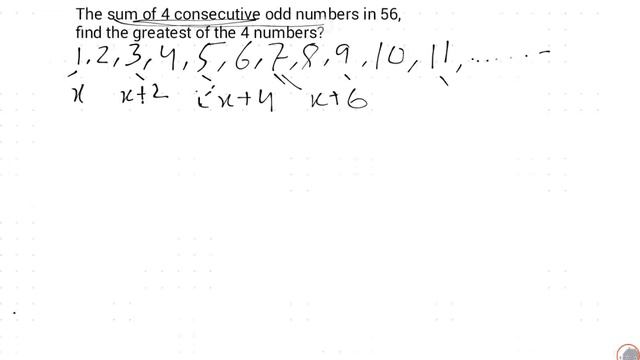 The sum of 4 consecutive odd numbers in 56,
find the greatest of the 4 numbers?
1, 2, 3, 4, 5, 6, 7, 8, 9, 10, 11, ......
x x+2 x+4 x+6